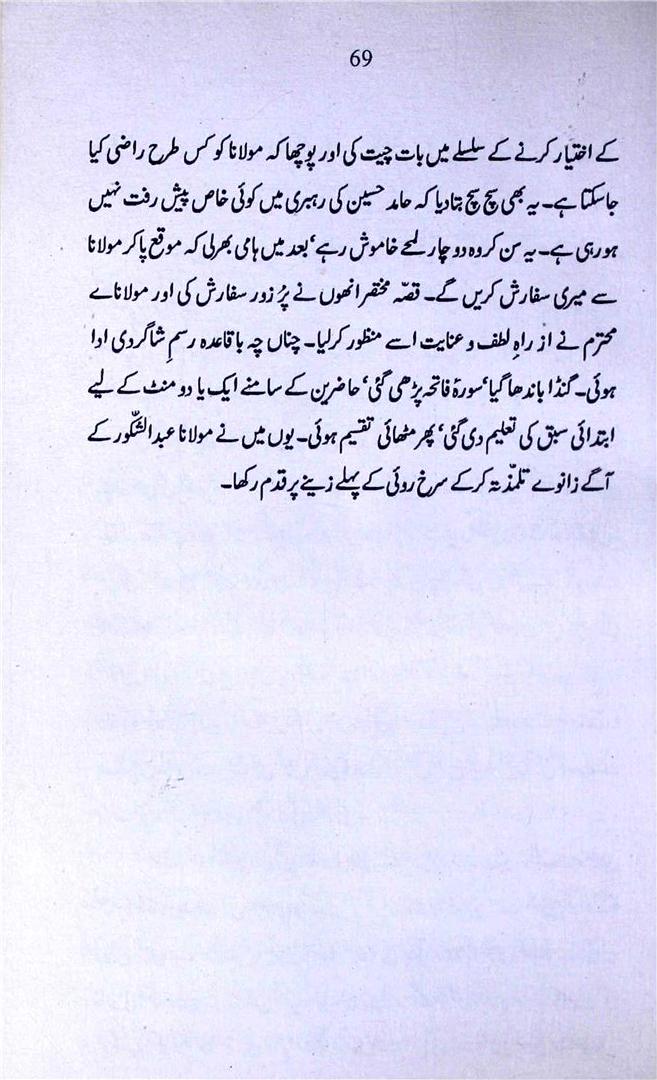 69
کے اختیار کرنے کے سلسلے میں بات چیت کی اور پوچھا کہ مولانا کو کس طرح راضی کیا
جاسکتا ہے۔ یہ بھی سچ سچ بتادیا کہ حامد حسین کی رہبری میں کوئی خاص پیش رفت نہیں
ہو رہی ہے۔ یہ سن کر وہ دو چار لمحے خاموش رہے‘ بعد میں ہامی بھرلی کہ موقع پاکر مولانا
سے میری سفارش کریں گے۔ قصّہ مختصر انھوں نے پُر زور سفارش کی اور مولاناے
محترم نے از راہِ لطف و عنایت اسے منظور کرلیا۔ چناں چہ باقاعدہ رسمِ شاگردی ادا
ہوئی۔ گنڈا باندھا گیا‘ سورۂ فاتحہ پڑھی گئی‘ حاضرین کے سامنے ایک یا دو منٹ کے لیے
ابتدائی سبق کی تعلیم دی گئی‘ پھر مٹھائی تقسیم ہوئی۔ یوں میں نے مولانا عبدالشّکور کے
آگے زانوے تلمّذ تہ کرکے سرخ روئی کے پہلے زینے پر قدم رکھا۔